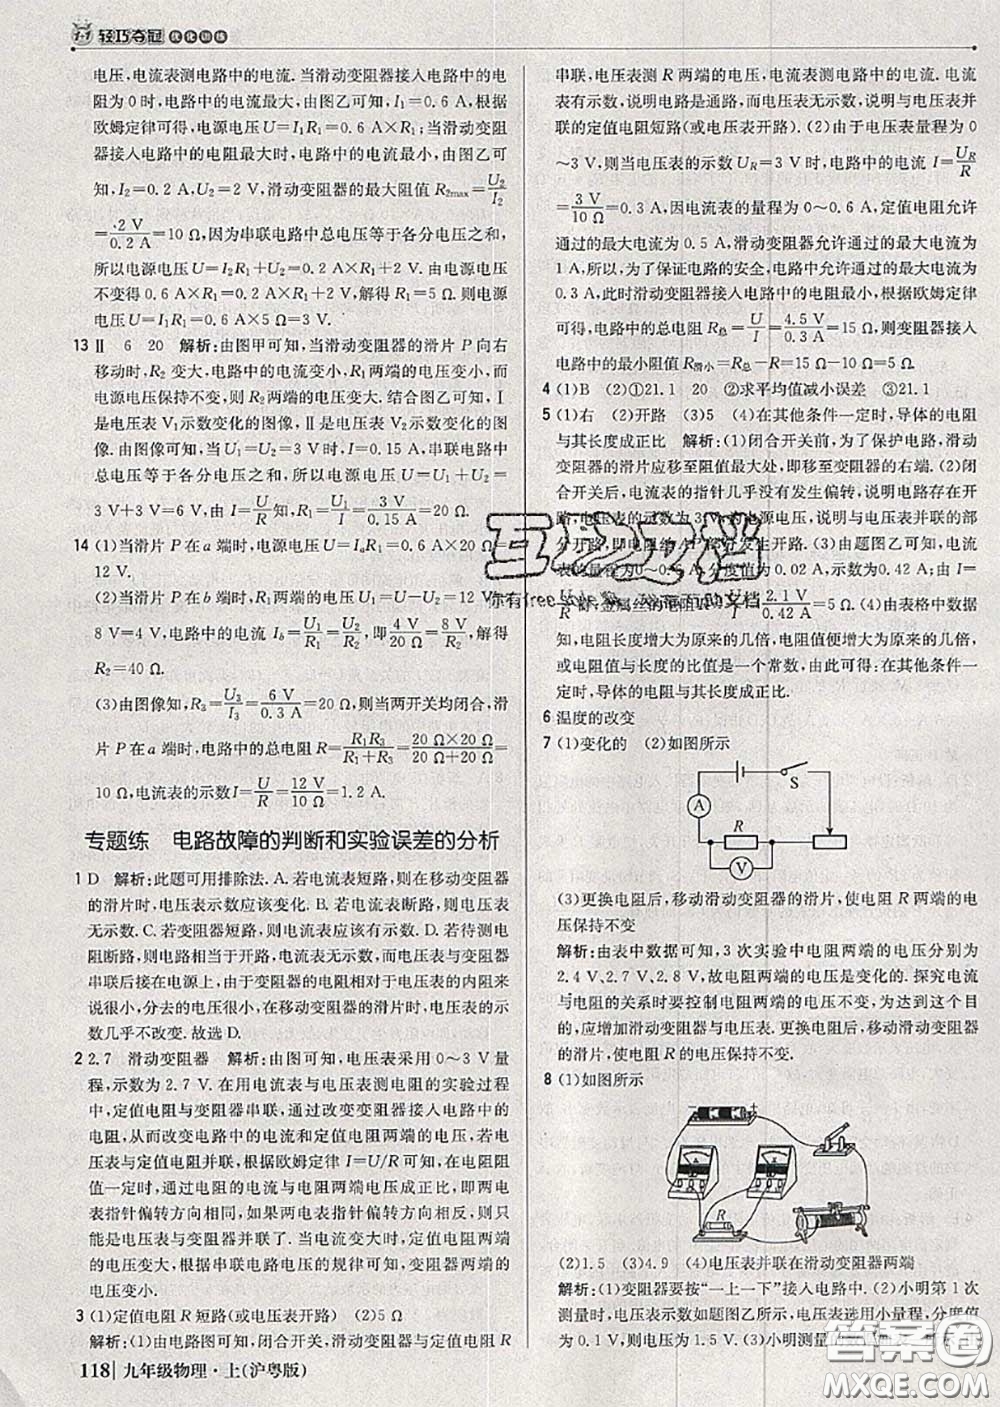 1+1 轻巧夺冠 优化训练
电压,电流表测电路中的电流. 当滑动变阻器接入电路中的电
阻为0时,电路中的电流最大,由图乙可知,I₁=0.6 A,根据
欧姆定律可得,电源电压U=I₁R₁=0.6 A×R₁;当滑动变阻
器接入电路中的电阻最大时,电路中的电流最小,由图乙可
知,I₂=0.2 A,U₂=2 V,滑动变阻器的最大阻值R₂max=U₂/I₂
=2 V/0.2 A=10 Ω,因为串联电路中总电压等于各分电压之和,
所以电源电压U=I₂R₁+U₂=0.2 A×R₁+2 V. 因电源电压
不变得0.6 A×R₁=0.2 A×R₁+2 V,解得R₁=5 Ω. 则电源
电压U=I₁R₁=0.6 A×5 Ω=3 V.
13 Ⅱ 6 20 解析:由图甲可知,当滑动变阻器的滑片P向右
移动时,R₂变大,电路中的电流变小,R₁两端的电压变小,因
电源电压保持不变,则R₂两端的电压变大. 结合图乙可知,Ⅰ
是电压表V₁示数变化的图像,Ⅱ是电压表V₂示数变化的图
像. 由图像可知,当U₁=U₂=3 V时,I=0.15 A,串联电路中
总电压等于各分电压之和,所以电源电压U=U₁+U₂=
3 V+3 V=6 V,由I=U/R知,R₁=U₁/I=3 V/0.15 A=20 Ω.
14 (1)当滑片P在a端时,电源电压U=IₐR₁=0.6 A×20 Ω=
12 V.
(2)当滑片P在b端时,R₁两端的电压U₁=U-U₂=12 V-
8 V=4 V,电路中的电流I_b=U₁/R₁=U₂/R₂,即4 V/20 Ω=8 V/R₂,解得
R₂=40 Ω.
(3)由图像知,R₃=U₃/I₃=6 V/0.3 A=20 Ω,则当两开关均闭合,滑
片P在a端时,电路中的总电阻R=R₁R₃/(R₁+R₃)=20 Ω×20 Ω/(20 Ω+20 Ω)=
10 Ω,电流表的示数I=U/R=12 V/10 Ω=1.2 A.
专题练 电路故障的判断和实验误差的分析
1 D 解析:此题可用排除法. A. 若电流表短路,则在移动变阻器
的滑片时,电压表示数应该变化. B. 若电流表断路,则电压表
无示数. C. 若变阻器短路,则电流表应该有示数. D. 若待测电
阻断路,则相当于开路,电流表无示数,而电压表与变阻器
串联后接在电源上,由于变阻器的电阻相对于电压表的内阻
很小,分去的电压很小,在移动变阻器的滑片时,电压表的示
数几乎不改变. 故选D.
2 2.7 滑动变阻器 解析:由图可知,电压表采用0~3 V量
程,示数为2.7 V. 在用电流表与电压表测电阻的实验过程
中,定值电阻与变阻器串联,通过改变变阻器接入电路中的
电阻,从而改变电路中的电流和定值电阻两端的电压,若电
压表与定值电阻并联,根据欧姆定律I=U/R可知,在电阻
阻值一定时,通过电阻的电流与电阻两端电压成正比,即两电
表指针偏转方向相同,如果两电表指针偏转方向相反,则只
能是电压表与变阻器并联了. 当电流变大时,定值电阻两端的
电压变大,根据串联电路电压的规律可知,变阻器两端的
电压变小.
3 (1)定值电阻R短路(或电压表开路) (2)5 Ω
解析:(1)由电路图可知,闭合开关,滑动变阻器与定值电阻R
串联,电压表测R两端的电压,电流表测电路中的电流. 电流
表有示数,说明电路是通路,而电压表无示数,说明与电压表并
联的定值电阻短路(或电压表开路). (2)由于电压表量程为0
~3 V,则当电压表的示数U_R=3 V时,电路中的电流I=U_R/R
=3 V/10 Ω=0.3 A,因电流表的量程为0~0.6 A,定值电阻允许
通过的最大电流为0.5 A,滑动变阻器允许通过的最大电流为
1 A,所以,为了保证电路的安全,电路中允许通过的最大电流为
0.3 A,此时滑动变阻器接入电路中的电阻最小,根据欧姆定律
可得,电路中的总电阻R总=U/I=4.5 V/0.3 A=15 Ω,则变阻器接入
电路中的最小阻值R滑小=R总-R=15 Ω-10 Ω=5 Ω.
4 (1)B (2)①21.1 20 ②求平均值减小误差 ③21.1
5 (1)右 (2)开路 (3)5 (4)在其他条件一定时,导体的电阻
与其长度成正比 解析:(1)闭合开关前,为了保护电路,滑动
变阻器的滑片应移至阻值最大处,即移至变阻器的右端. (2)闭
合开关后,电流表的指针几乎没有发生偏转,说明电路存在开
路,电压表的示数为3 V,为电源电压,说明与电压表并联的部
分开路,即电阻丝发生开路. (3)由题图乙可知,电流
表的量程为0~0.6 A,分度值为0.02 A,示数为0.42 A;由
金属丝的电阻R=2.1 V/0.42 A=5 Ω. (4)由表格中数据可
知,电阻长度增大为原来的几倍,电阻值便增大为原来的几倍,
或电阻值与长度的比值是一个常数,由此可得:在其他条件一
定时,导体的电阻与其长度成正比.
6 温度的改变
7 (1)变化的 (2)如图所示
S
A
R
V
(3)更换电阻后,移动滑动变阻器的滑片,使电阻R两端的电
压保持不变
解析:由表中数据可知,3次实验中电阻两端的电压分别为
2.4 V、2.7 V、2.8 V,故电阻两端的电压是变化的. 探究电流
与电阻的关系时要控制电阻两端的电压不变,为达到这个目
的,应增加滑动变阻器与电压表. 更换电阻后,移动滑动变阻器
的滑片,使电阻R的电压保持不变.
8 (1)如图所示
- +
A V
R
(2)1.5 (3)4.9 (4)电压表并联在滑动变阻器两端
解析:(1)变阻器要按“一上一下”接入电路中. (2)小明第1次
测量时,电压表示数如题图乙所示,电压表选用小量程,分度值
为0.1 V,则电压为1.5 V. (3)小明测量
互动文档
你有free
互助文档
答案圈
MXQE.COM
118 九年级物理·上(沪粤版)